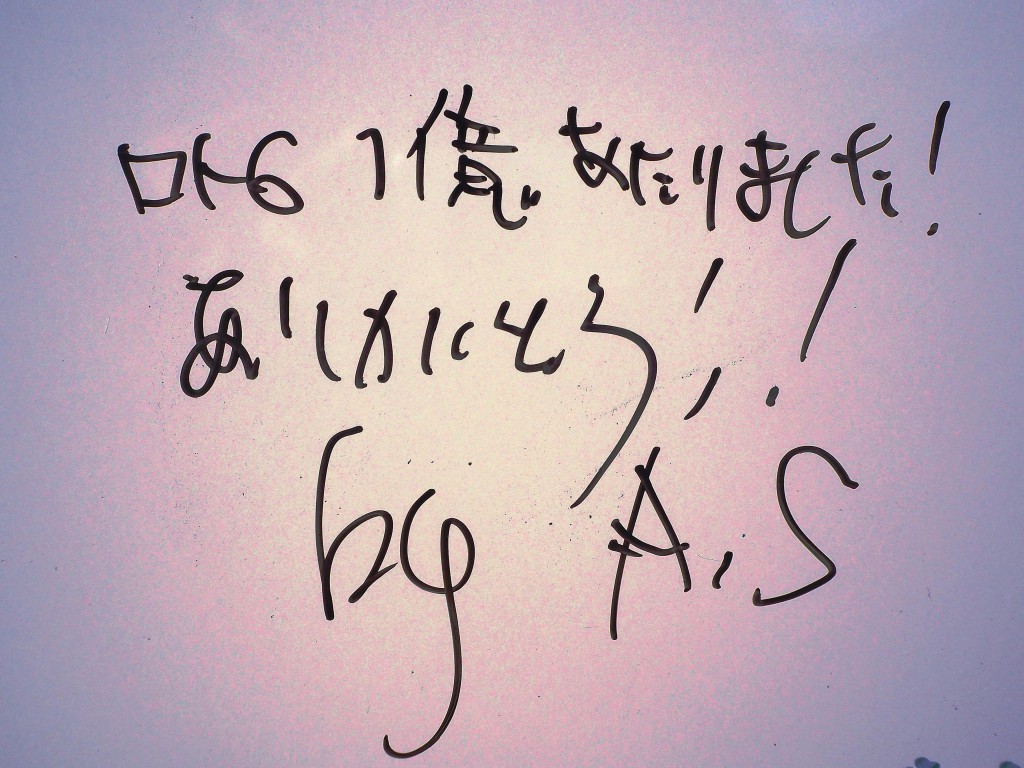 ロト6 1億あたりました!
ありがとう!!
by A.S